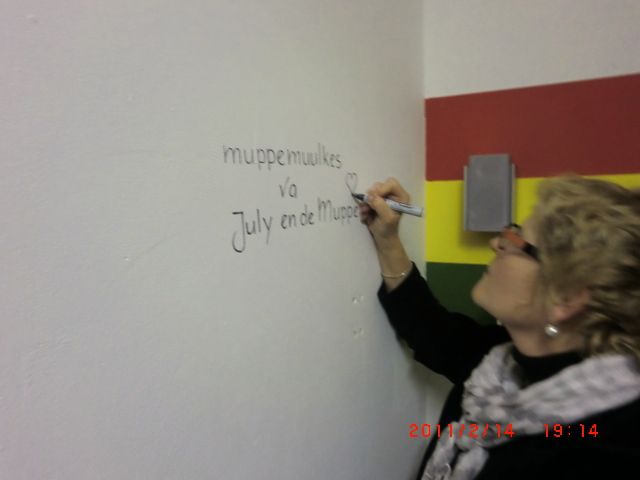 muppemuulkes
va
July en de Muppe
2011/2/14 19:14